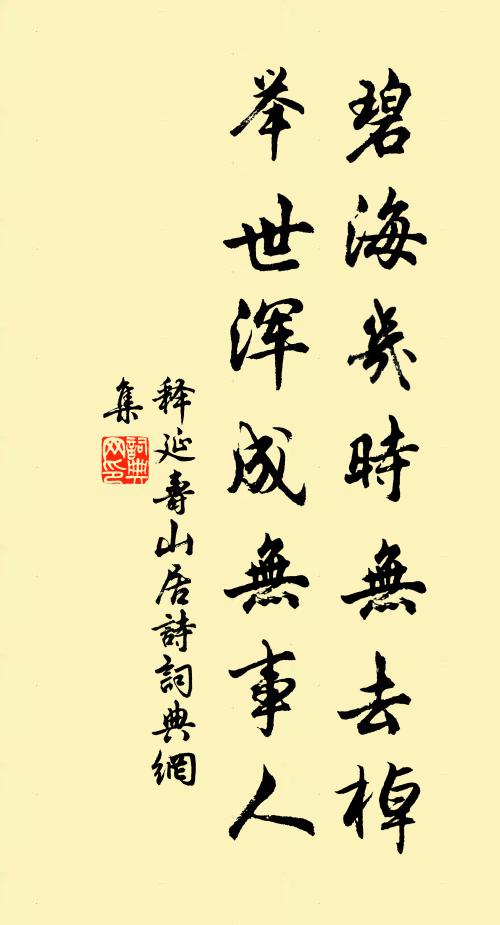 碧海幾時無去棹
举世浑成無事人
释延壽山居詩詞典網
集
詞典网印